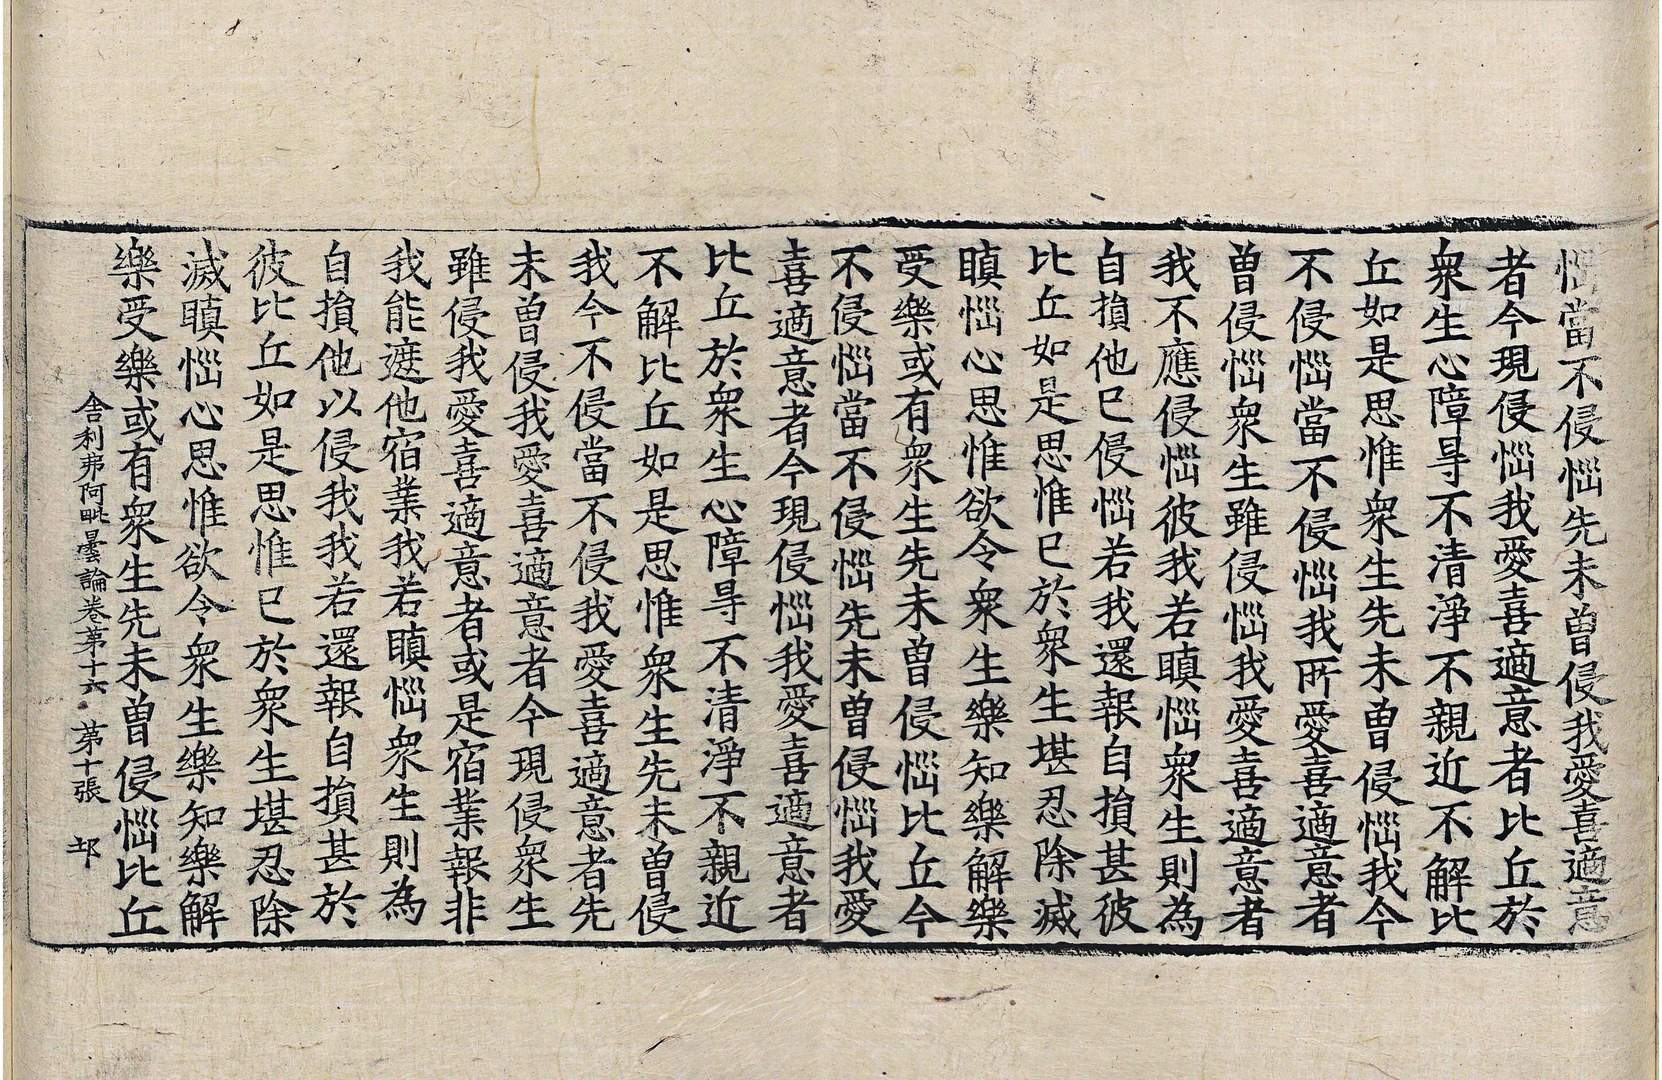 惱當不侵惱先未曾侵我愛喜適意
者今現侵惱我愛喜適意者比丘於
衆生心障㝵不清淨不親近不解比
丘如是思惟衆生先未曾侵惱我今
不侵惱當不侵惱我所愛喜適意者
曽侵惱衆生雖侵惱我愛喜適意者
我不應侵惱彼我若瞋惱衆生則為
自損他已侵惱若我還報自損甚彼
比丘如是思惟已於衆生堪忍除滅
瞋惱心思惟欲令衆生樂知樂解樂
受樂或有衆生先未曽侵惱比丘今
不侵惱當不侵惱先未曽侵惱我愛
喜適意者今現侵惱我愛喜適意者
比丘於衆生心障㝵不清淨不親近
不解比丘如是思惟衆生先未曽侵
我今不侵當不侵我愛喜適意者先
未曽侵我愛喜適意者今現侵衆生
雖侵我愛喜適意者或是宿業報非
我能遮他宿業我若瞋惱衆生則為
自損他以侵我我若還報自損甚於
彼比丘如是思惟已於衆生堪忍除
滅瞋惱心思惟欲令衆生樂知樂解
樂受樂或有衆生先未曽侵惱比丘
舍利弗阿毗曇論卷第十六 第十張